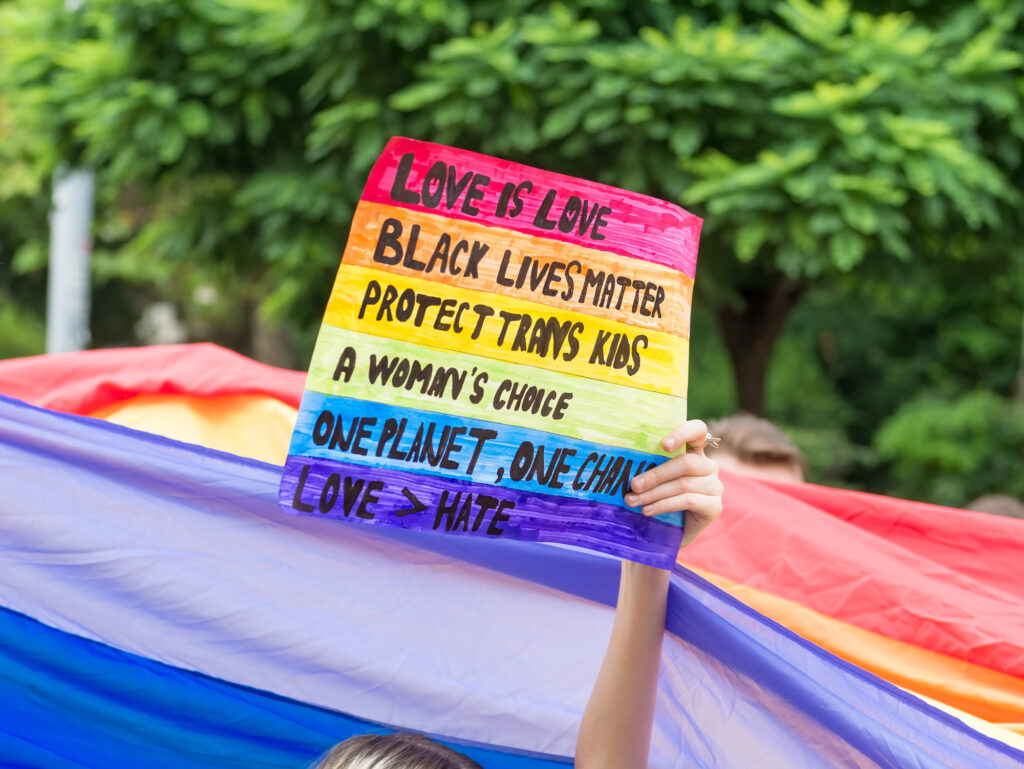 LOVE IS LOVE
BLACK LIVES MATTER
PROTECT TRANS KIDS
A WOMAN'S CHOICE
ONE PLANET, ONE
LOVE > HATE